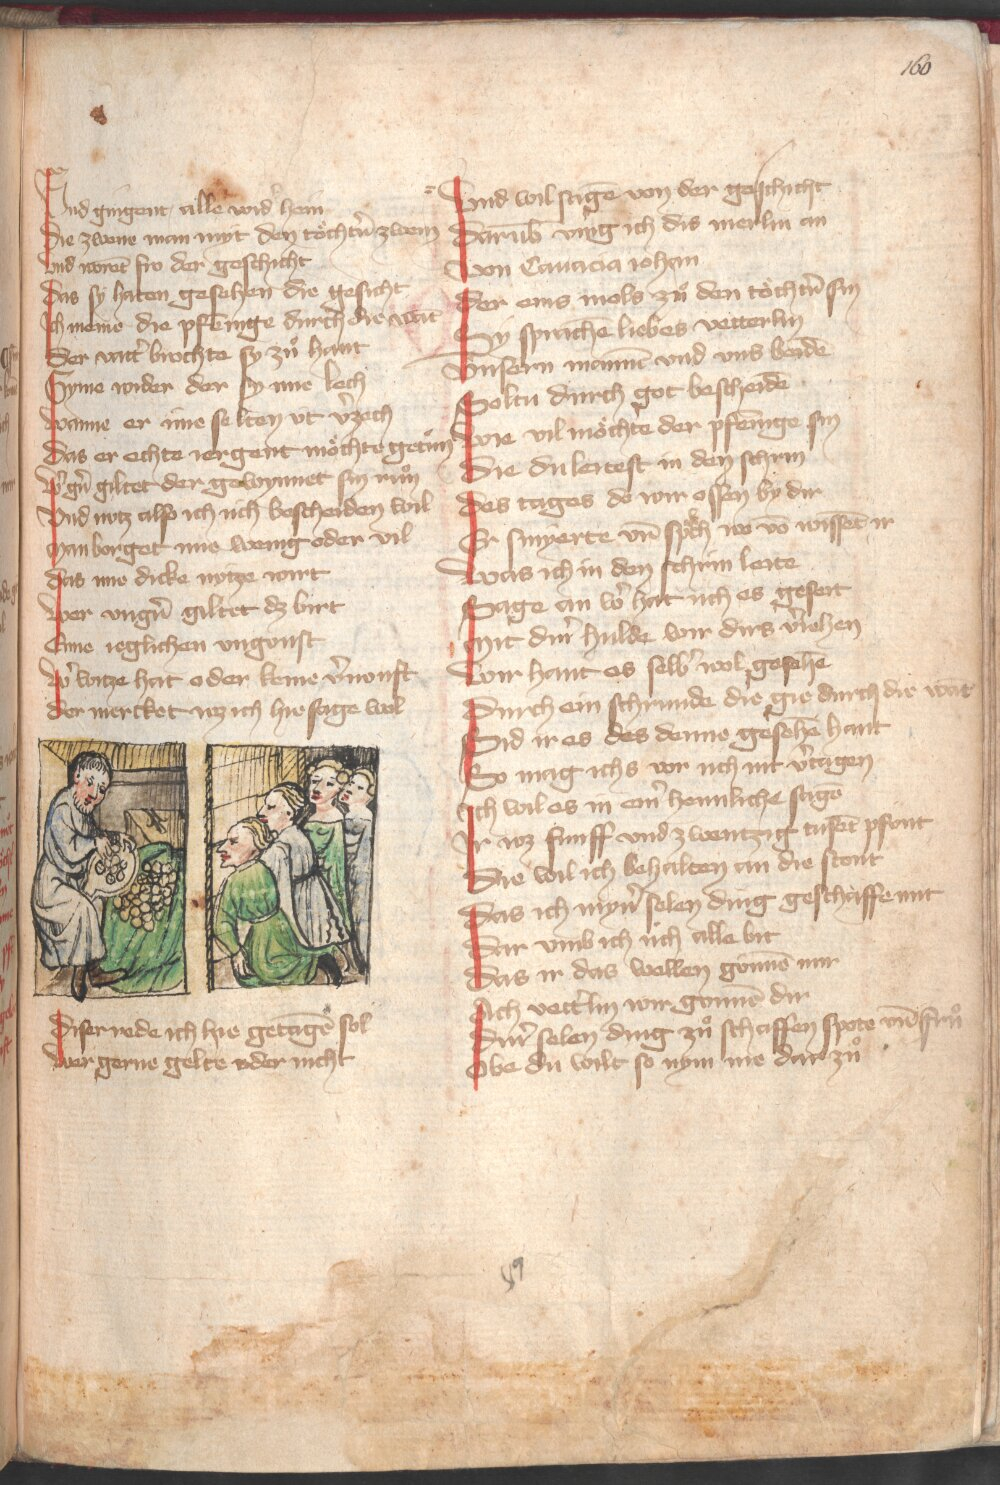 160
Und gingent alle wid' hein
Die zwene man mit den töchtn̄ zwein
Und worēt fro der geschicht
Das sy haten gesehen die gesicht
Ich meine die pfēninge durch die want
Der vatt' brochte sy zů hant
Hyme wider der sy ime lech
Wanne er ime selten üt v'zech
Das er echte iergent möchte getůn
W' gn̄ giltet der gewynnet sin růn
Und wz also ich üch bescheiden wil
Man borget ime wenig oder vil
Das ime dicke nütze wirt
Wer vngn̄ giltet dz birt
Eime ieglichen vngunst
W' witze hat oder keine v'nunft
Der mercket wz ich hie sage wol
Diser rede ich hie getagē sol
Wer gerne gelte oder nicht
Und wil sagē von der geschicht
Darub ving ich dis merlin an
Von Cauacia iohan
Der eins mols zů den töchtn̄ sin
Sy sprachē liebes vetterlin
Vnsern mannē vnd vns beidē
Soltu durch got bescheidē
Wie vil möchte der pfēninge sin
Die du leitest in den schrin
Des tages do wir ossen by dir
Er smyerte vn̄ sprach wo vō wissēt ir
Was ich in den schrin leite
Sage an w' hat üch es geseit
Mit din' hulde wir dirs v'iehen
Wir hant es selb' wol gesehē
Durch ein schrunde die gie durch die want
Sid ir es des denne gesehē hant
So mag ichs vor üch nit v'tagen
Ich wil es in ein' heimliche sage
Ir wz fünff vnd zwentzig tusēt pfont
Die wil ich behalten an die stont
Das ich myn' selen ding geschaffe mit
Dar vmb ich üch alle bit
Das ir das wellen gonnē mir
Ach vett'lin wir gonnē dir
Din' selen ding zů schaffen spote vn̄ frů
Obe du wilt so nym me dar zů